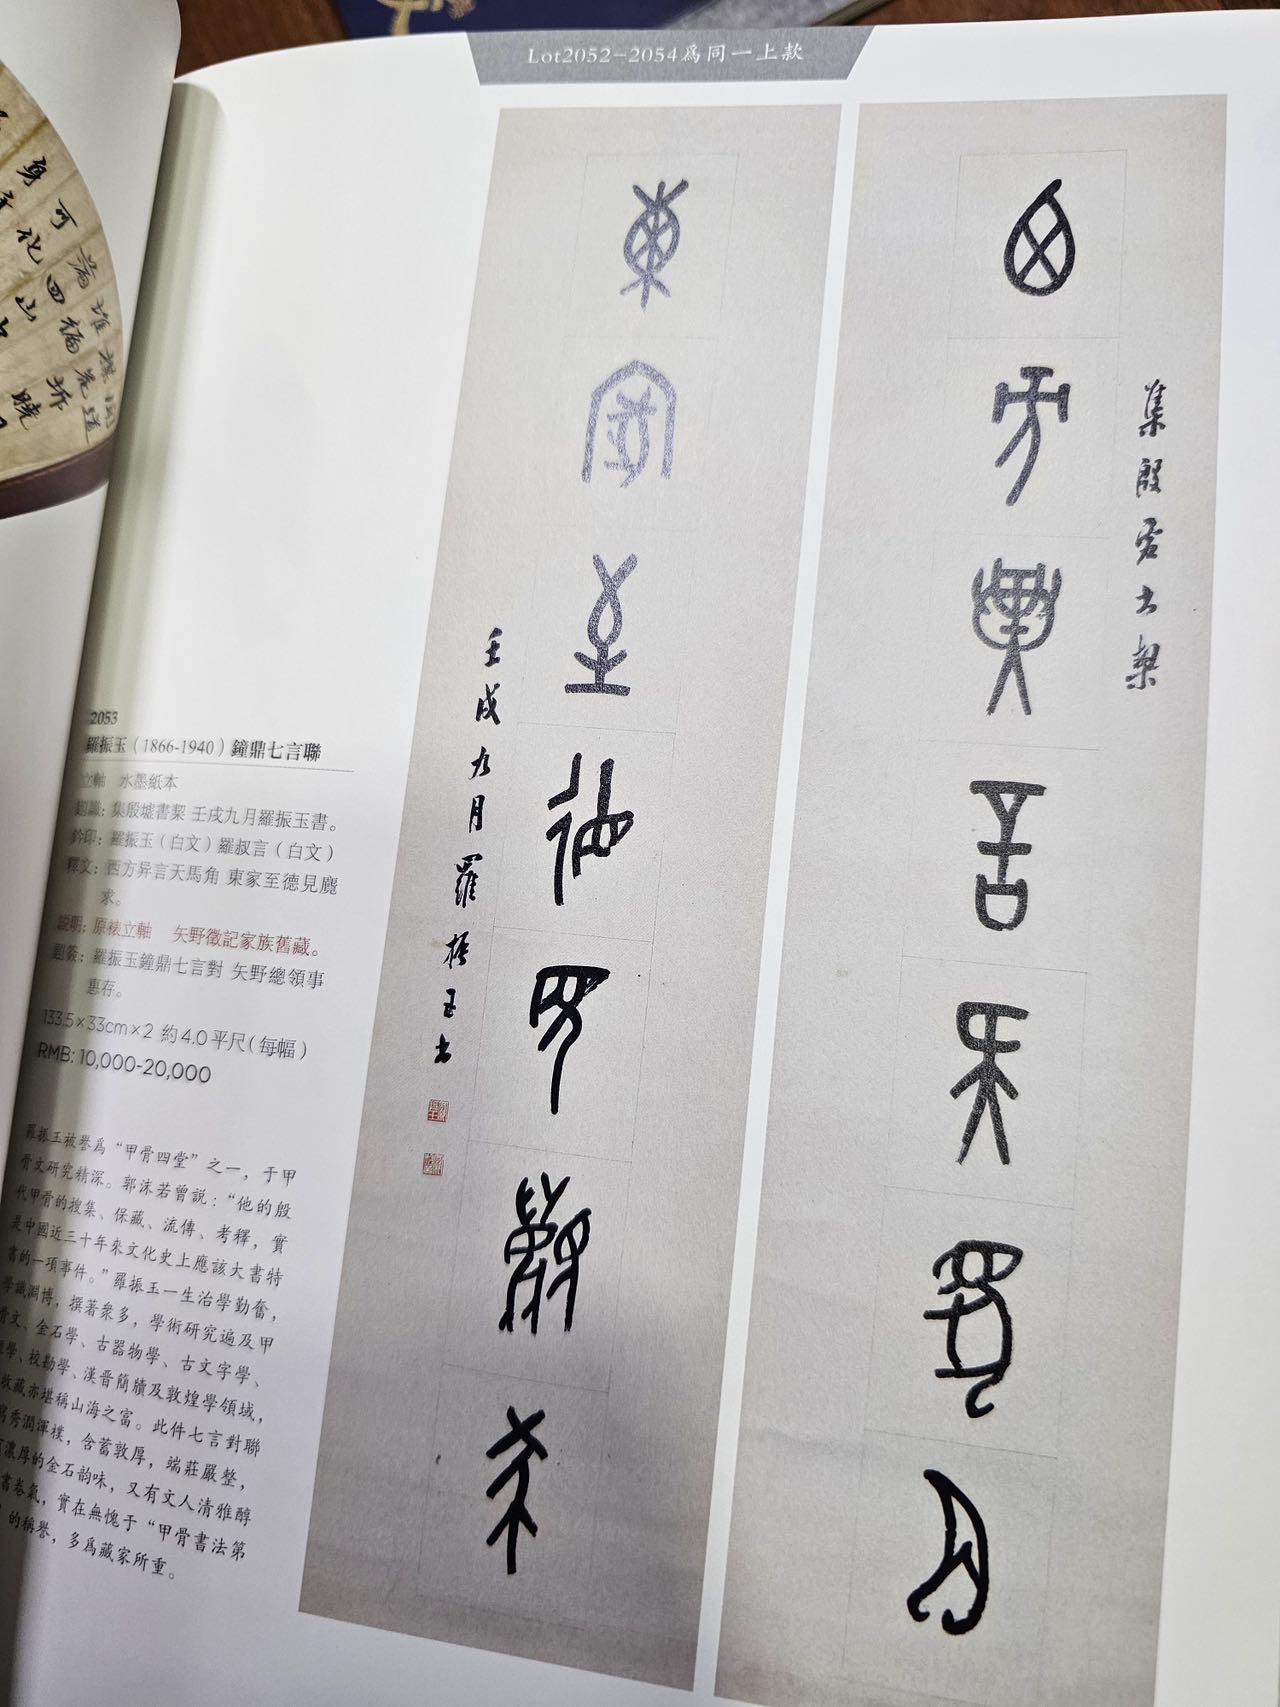 Lot2052-2054爲同一上款
西方异言天馬角
集殷虛書栔
東家至德見麑求
壬戌九月羅振玉書
2053
羅振玉（1866-1940）鐘鼎七言聯
立軸 水墨紙本
題識：集殷墟書栔 壬戌九月羅振玉書。
鈐印：羅振玉（白文）羅叔言（白文）
釋文：西方异言天馬角 東家至德見麑
求。
説明：原裱立軸 矢野徵記家族舊藏。
題簽：羅振玉鐘鼎七言對 矢野總領事
惠存。
133.5×33cm×2 約4.0平尺（每幅）
RMB: 10,000-20,000
羅振玉被譽爲“甲骨四堂”之一，于甲
骨文研究精深。郭沫若曾説：“他的殷
代甲骨的搜集、保藏、流傳、考釋，實
是中國近三十年來文化史上應該大書特
書的一項事件。”羅振玉一生治學勤奮，
學識淵博，撰著衆多，學術研究遍及甲
骨文、金石學、古器物學、古文字學、
學、校勘學、漢晋簡牘及敦煌學領域，
收藏亦堪稱山海之富。此件七言對聯
秀潤渾樸，含蓄敦厚，端莊嚴整，
濃厚的金石韵味，又有文人清雅醇
書卷氣，實在無愧于“甲骨書法第
的稱譽，多爲藏家所重。